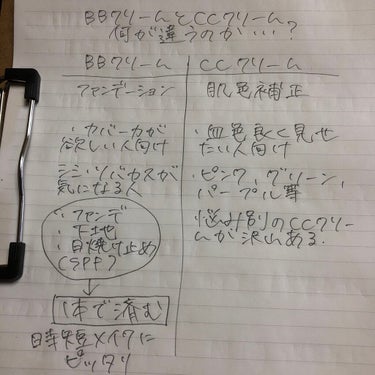 BBクリームとCCクリーム
何が違うのか…?
BBクリーム
ファンデーション
・カバー力が
欲しい人向け
シミ・ソバカスが
気になる人
・ファンデ
・下地
・日焼け止め
(SPF)
1本で済む
時短メイクに
ピッタリ
CCクリーム
肌色補正
・血色良く見せ
たい人向け
・ピンク、グリーン、
パープル等
悩み別のCCクリー
ムが沢山ある.